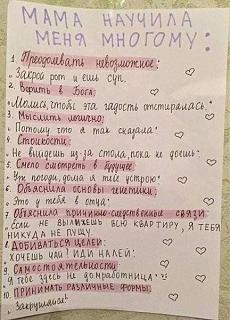 МАМА НАУЧИЛА
МЕНЯ МНОГОМУ:
1. Преодолевать невозможное:
„Закрой рот и ешь суп.
2. Верить в Бога:
„Молись, чтобы эта гадость отстиралась."
3. Мыслить логично:
„Потому что я так сказала."
4. Стойкости:
„Не выйдешь из-за стола, пока не доешь."
5. Смело смотреть в будущее:
„Уж погоди, дома я тебе устрою."
6. Объяснила основы генетики:
„Это у тебя в отца."
7. Объяснила причинно-следственные связи:
„Если не вылижешь всю квартиру, я тебя
никуда не пущу.
8. Добиваться целей:
„Хочешь чай? Иди налей."
9. Самостоятельности:
„Я тебе здесь не домработница."
10. Принимать различные формы:
„Закругляйся!"